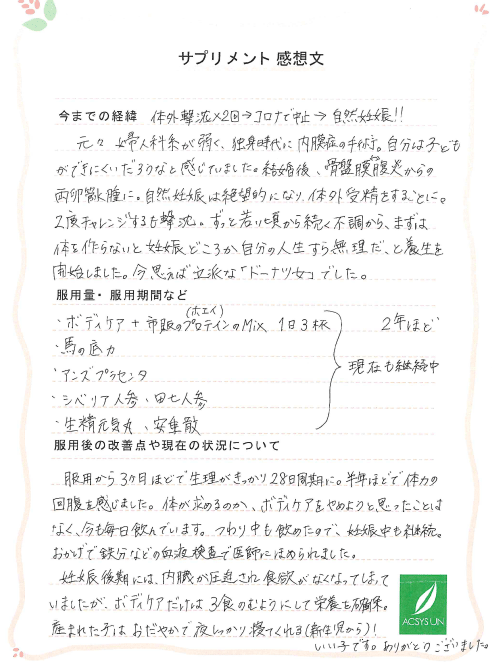 サプリメント 感想文
今までの経緯 体外撃沈×2回→コロナで中止→自然妊娠!!
元々 婦人科系が弱く、独身時代に内膜症の手術。自分は子ども
ができにくいだろうなと感じていました。結婚後、骨盤腹膜炎からの
両卵管水腫に。自然妊娠は絶望的になり、体外受精をすることに。
2度チャレンジするも撃沈。ずっと若い頃から続く不調から、まずは
体を作らないと妊娠どころか自分の人生すら無理だ、と養生を
開始しました。今思えば立派な「ドーナツ女」でした。
服用量・服用期間など
・ボディケア+市販のプロテイン(ホエイ)のMix 1日3杯 2年ほど
・馬の底力
・アンズプラセンタ 現在も継続中
・シベリア人参・田七人参
・生精元気丸、安重散
服用後の改善点や現在の状況について
服用から3ヶ月ほどで生理がきっかり28日周期に。半年ほどで体力の
回腹を感じました。体が求めるのか、ボディケアをやめようと思ったことは
なく、今も毎日飲んでいます。つわり中も飲めたので、妊娠中も継続。
おかげで鉄分などの血液検査で医師にほめられました。
妊娠後期には、内臓が圧迫され食欲がなくなってしまって
いましたが、ボディケアだけは3食のむようにして栄養を確保。
産まれた子は おだやかで夜しっかり寝てくれる(新生児から)!
いい子です。ありがとうございました。
ACSYSUN